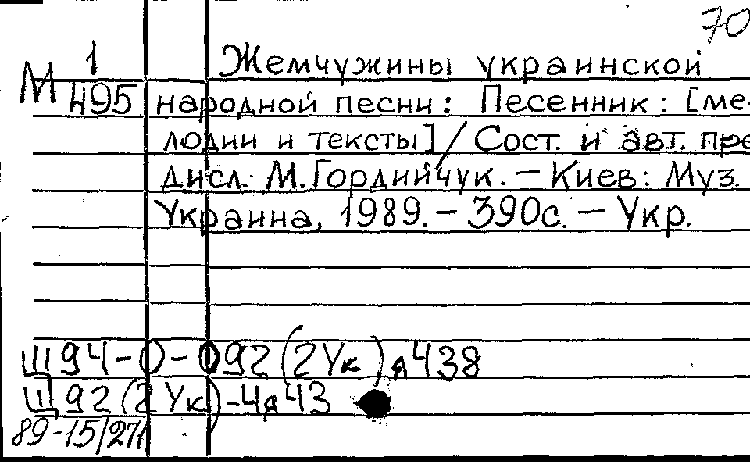 70
М 1/495 Жемчужины украинской
народной песни: Песенник: [ме-
лодии и тексты] / Сост. и авт. пре
дисл. М. Гордийчук. – Киев: Муз.
Украина, 1989. – 390с. – Укр.
Щ94-0-092(2Ук)я438
Щ92(2Ук)-4я43
89-15/271